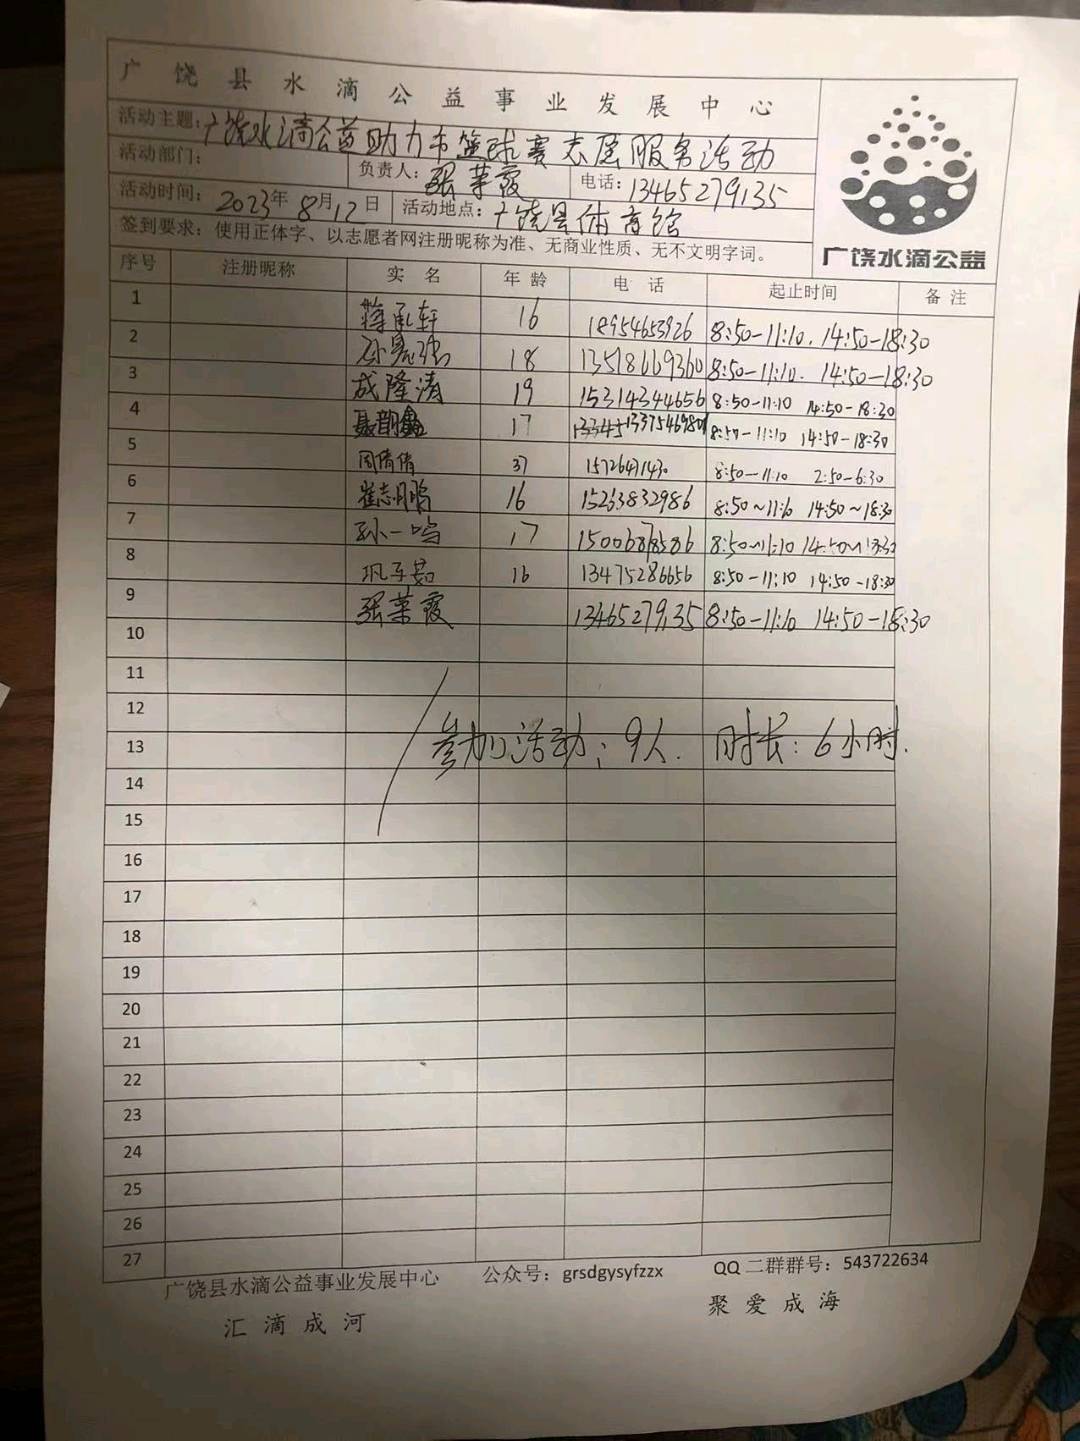 广饶县水滴公益事业发展中心
活动主题：广饶水滴公益助力市篮球赛志愿服务活动
活动部门： 负责人：张荣霞 电话：13465279135
活动时间：2023年8月12日 活动地点：广饶县体育馆
签到要求：使用正体字、以志愿者网注册昵称为准、无商业性质、无不文明字词。
广饶水滴公益
序号 注册昵称 实名 年龄 电话 起止时间 备注
1 蒋承轩 16 18954653926 8:50-11:10. 14:50-18:30
2 18 13518669360 8:50-11:10. 14:50-18:30
3 成隆清 19 15314344656 8:50-11:10 14:50-18:30
4 17 8:50-11:10 14:50-18:30
5 周倩倩 37 15726471430 8:50-11:10 2:50-6:30
6 崔志鹏 16 15263832986 8:50~11:10 14:50~18:30
7 孙一鸣 17 8:50~11:10 14:50~18:30
8 巩子茹 16 13475286656 8:50-11:10 14:50-18:30
9 张荣霞 13465279135 8:50-11:10 14:50-18:30
10
11
12
13 参加活动：9人. 时长：6小时.
14
15
16
17
18
19
20
21
22
23
24
25
26
27
广饶县水滴公益事业发展中心 公众号：grsdgysyfzzx QQ二群群号：543722634
汇滴成河 聚爱成海